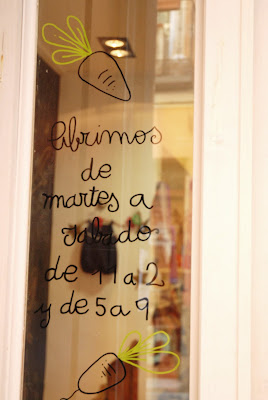 Abrimos
de
martes a
sabado
de 11 a 2
y de 5 a 9